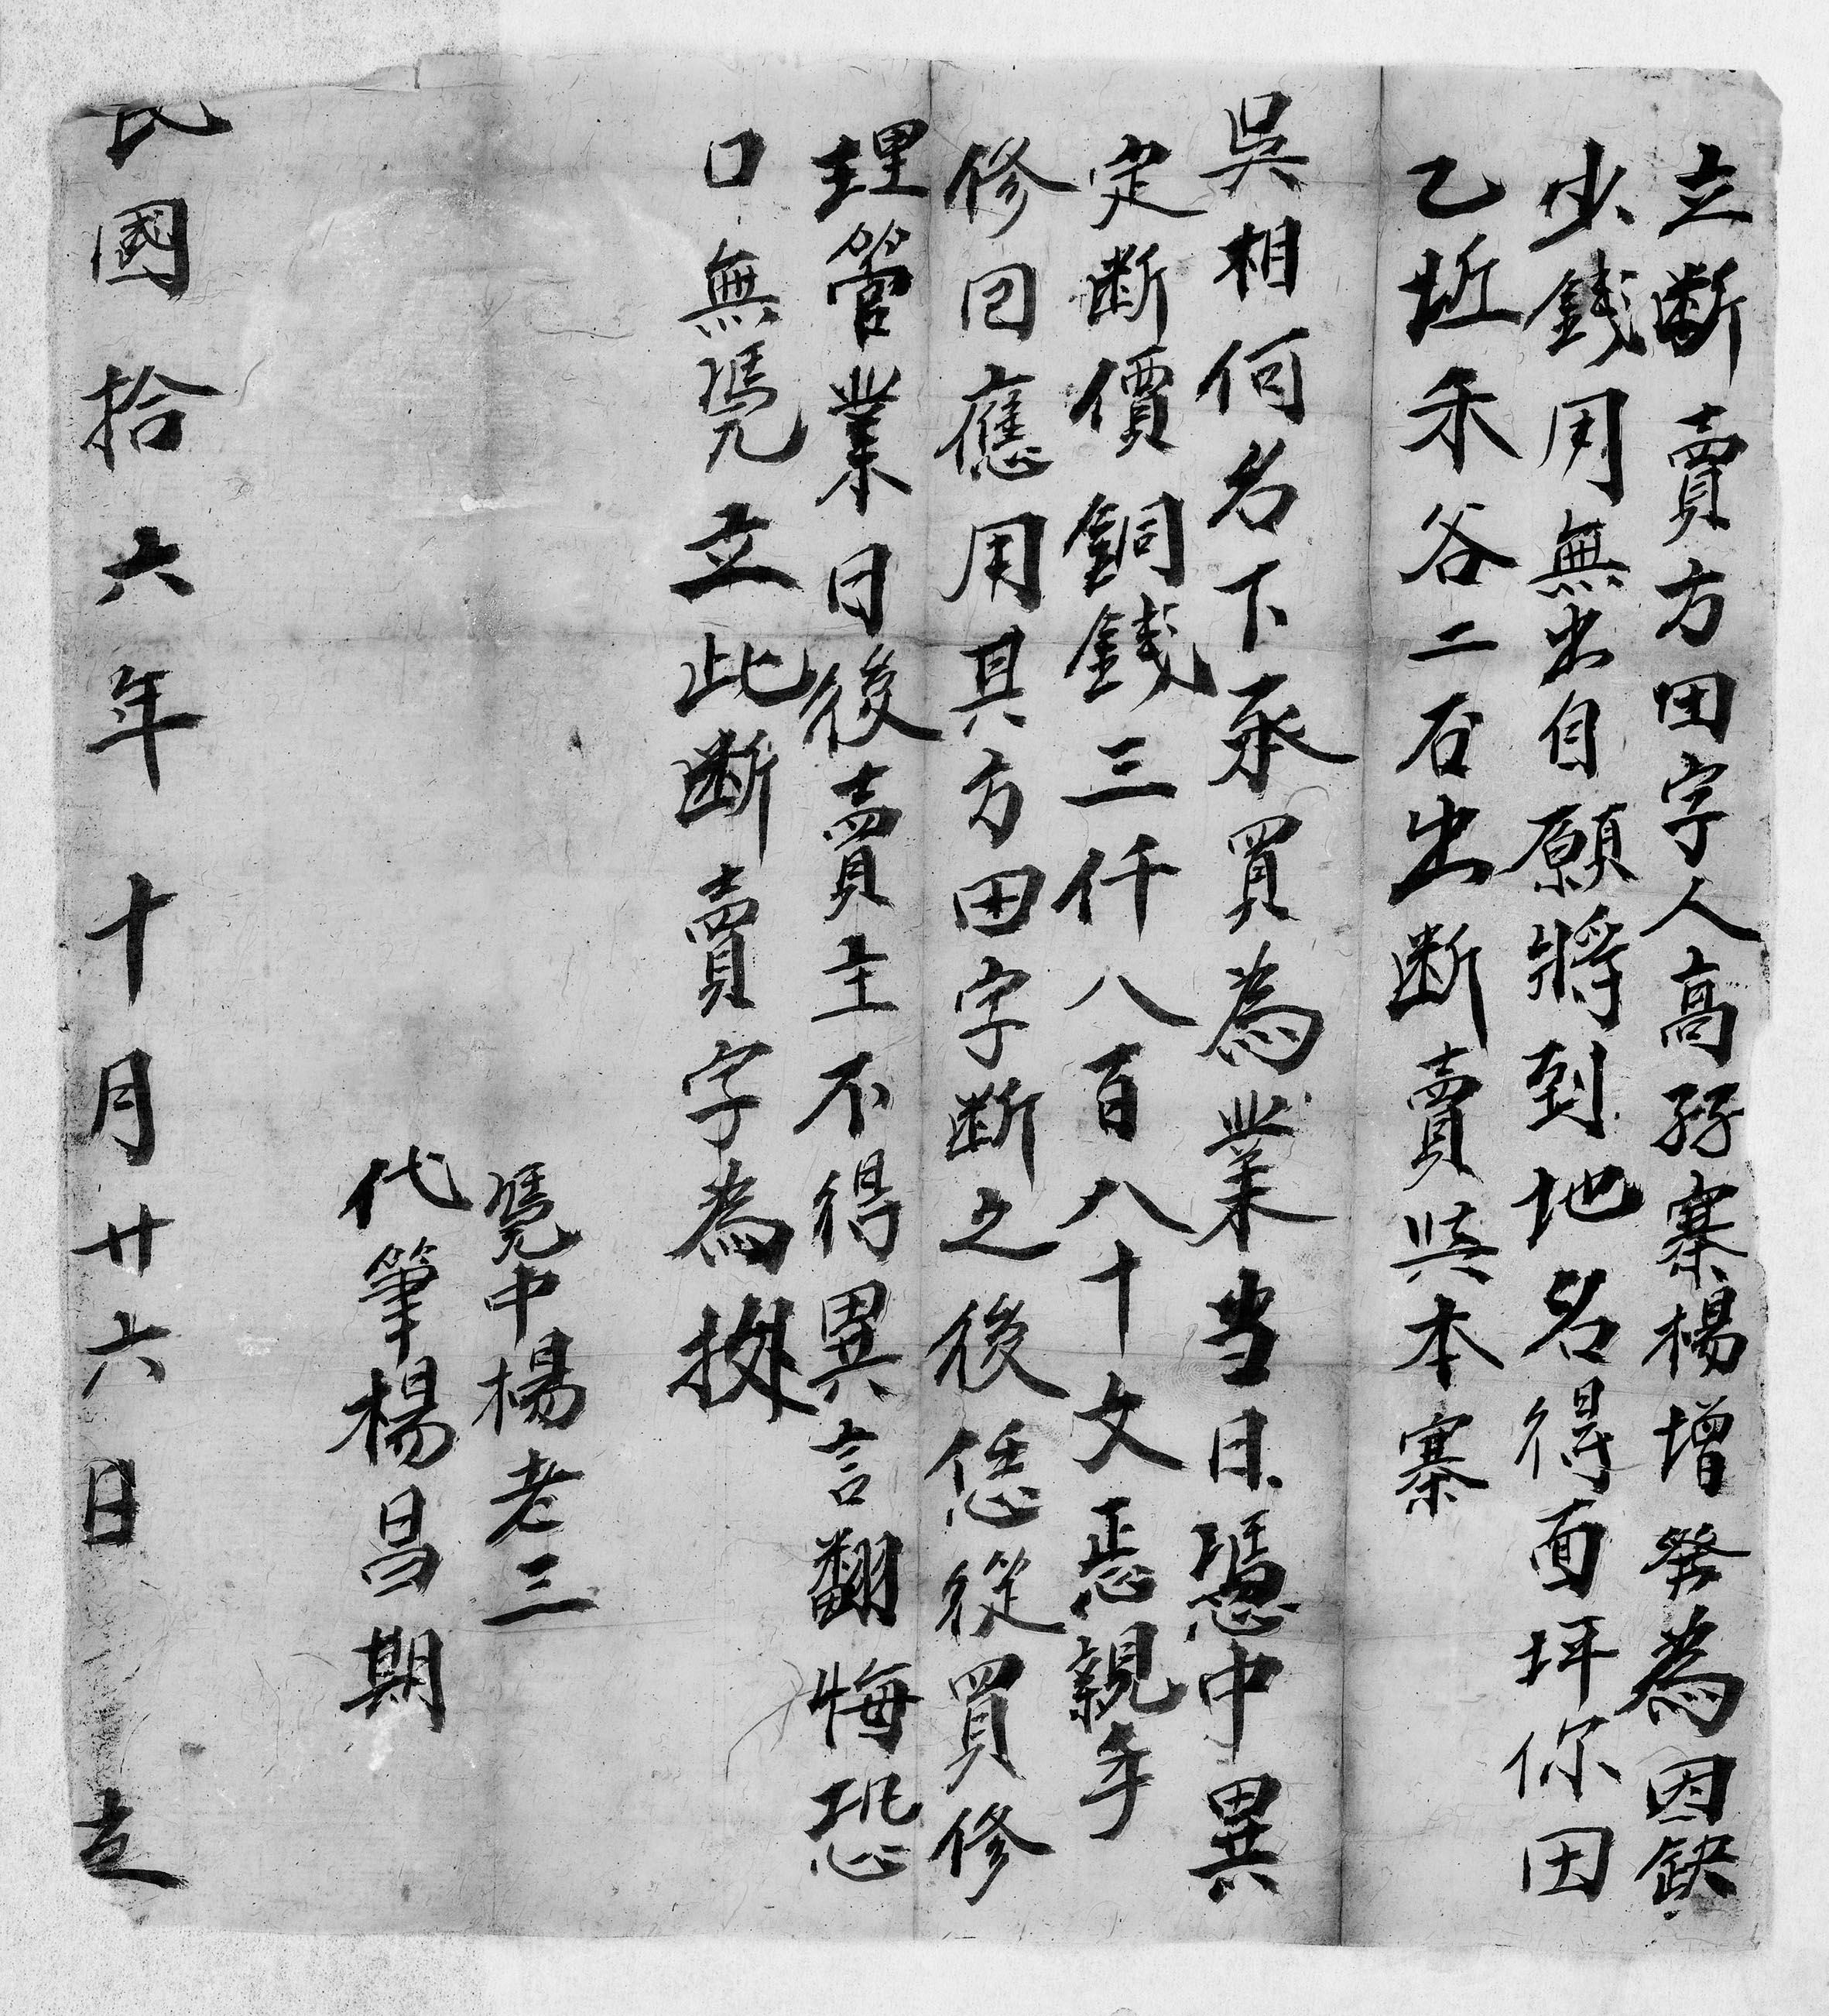 立断賣方田字人髙孖寨楊增發為因缺
少錢用無出自願將到地名得面坪你田
乙坵禾谷二石出断賣與本寨
吳相何名下承買為業当日憑中異
定断價銅錢三仟八百八十文悪親手
修回應用其方田字断之後恁從買修
理管業日後賣主不得異言翻悔恐
口無凴立此断賣字為拠
凴中楊老三
代筆楊昌期
民國拾六年十月廿六日立